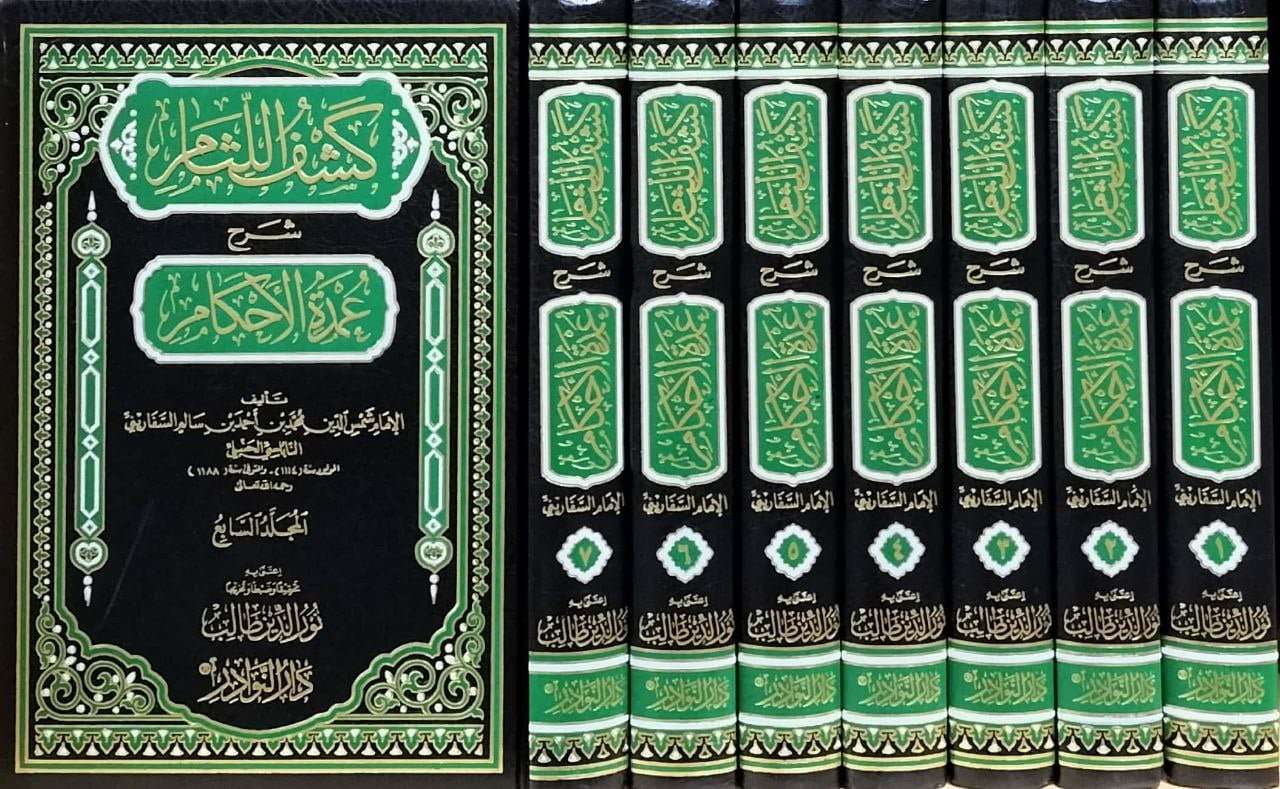 كشف اللثام
شرح
عمدة الأحكام
تأليف
الإمام شمس الدين محمد بن أحمد بن سالم السفاريني
النابلسي الحنبلي
المولود سنة (١١١٤) - والمتوفى سنة (١١٨٨)
رحمه الله تعالى
المجلد السابع
اعتنى به
تحقيقا وضبطا وتخريجا
نور الدين طالب
دار النوادر
كشف اللثام
شرح
عمدة الأحكام
الإمام السفاريني
١
اعتنى به
نور الدين طالب
دار النوادر
كشف اللثام
شرح
عمدة الأحكام
الإمام السفاريني
٢
اعتنى به
نور الدين طالب
دار النوادر
كشف اللثام
شرح
عمدة الأحكام
الإمام السفاريني
٣
اعتنى به
نور الدين طالب
دار النوادر
كشف اللثام
شرح
عمدة الأحكام
الإمام السفاريني
٤
اعتنى به
نور الدين طالب
دار النوادر
كشف اللثام
شرح
عمدة الأحكام
الإمام السفاريني
٥
اعتنى به
نور الدين طالب
دار النوادر
كشف اللثام
شرح
عمدة الأحكام
الإمام السفاريني
٦
اعتنى به
نور الدين طالب
دار النوادر
كشف اللثام
شرح
عمدة الأحكام
الإمام السفاريني
٧
اعتنى به
نور الدين طالب
دار النوادر